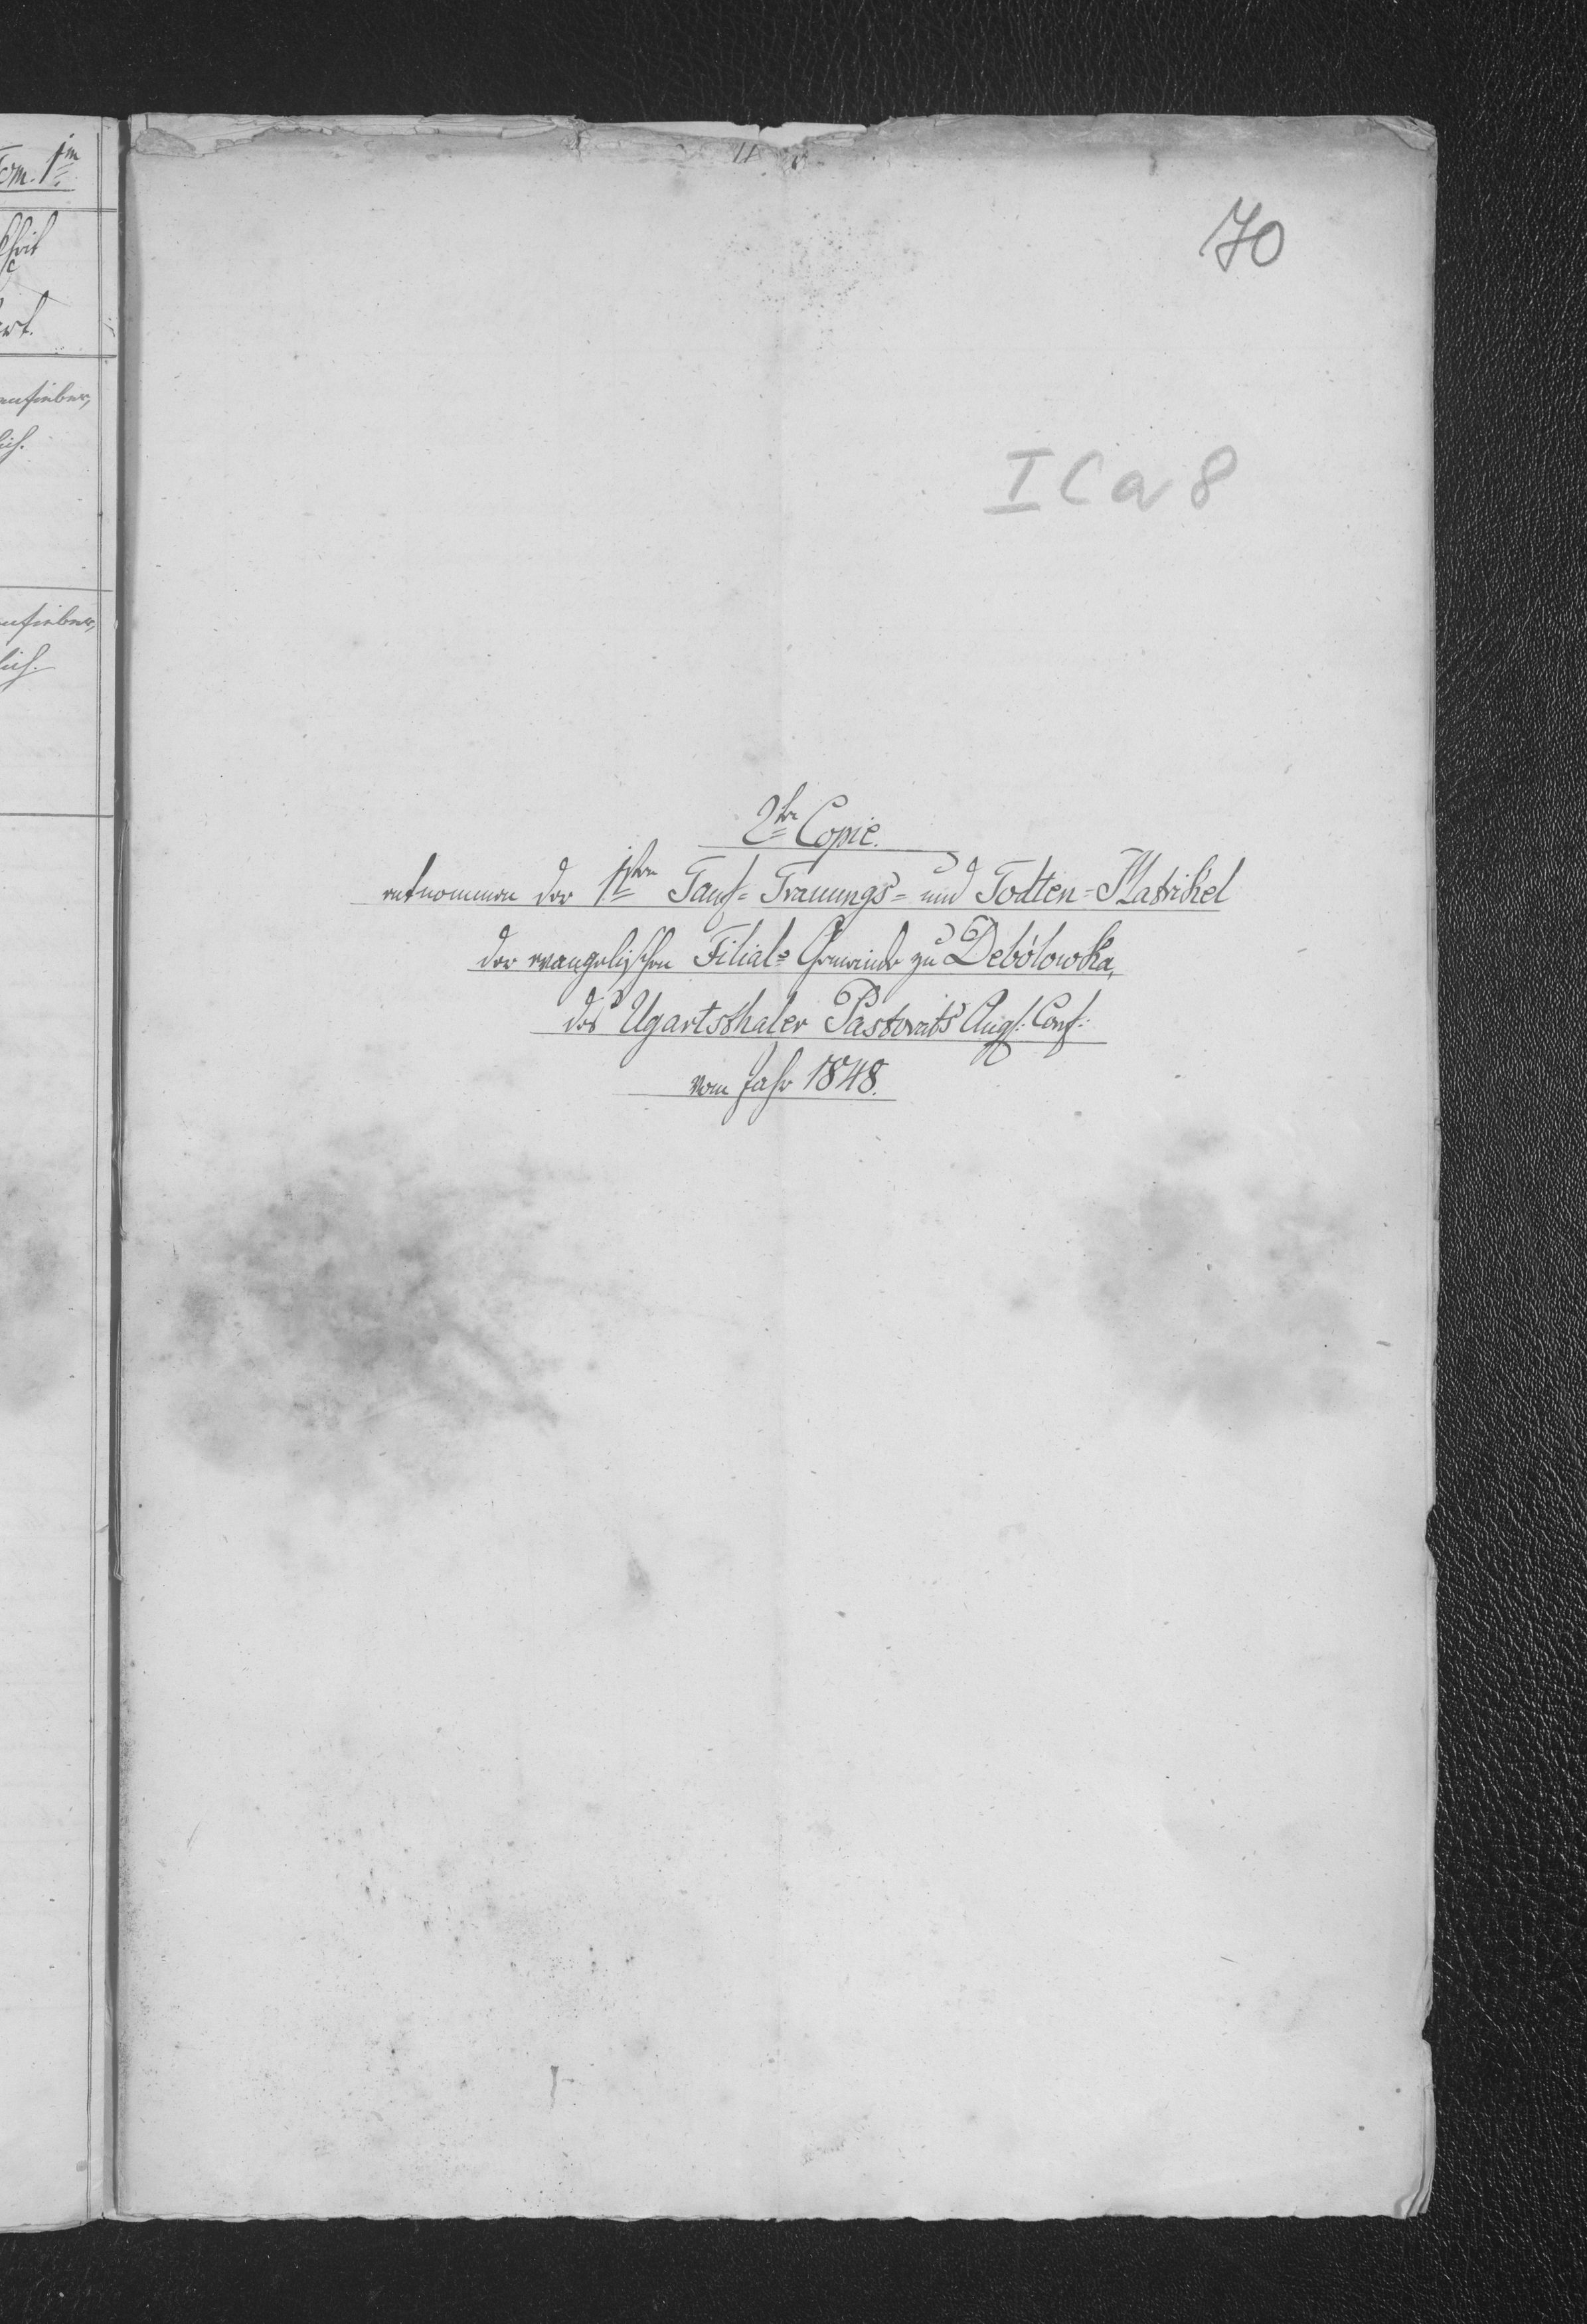 Tom. 1m
70
I C a 8
2te Copie.
entnommen der 1sten Tauf= Trauungs= und Todten=Matrikel
der evangelischen Filial=Gemeinde zu Debólowka,
des Ugartsthaler Pastorats Augs: Conf:
vom Jahr 1848.